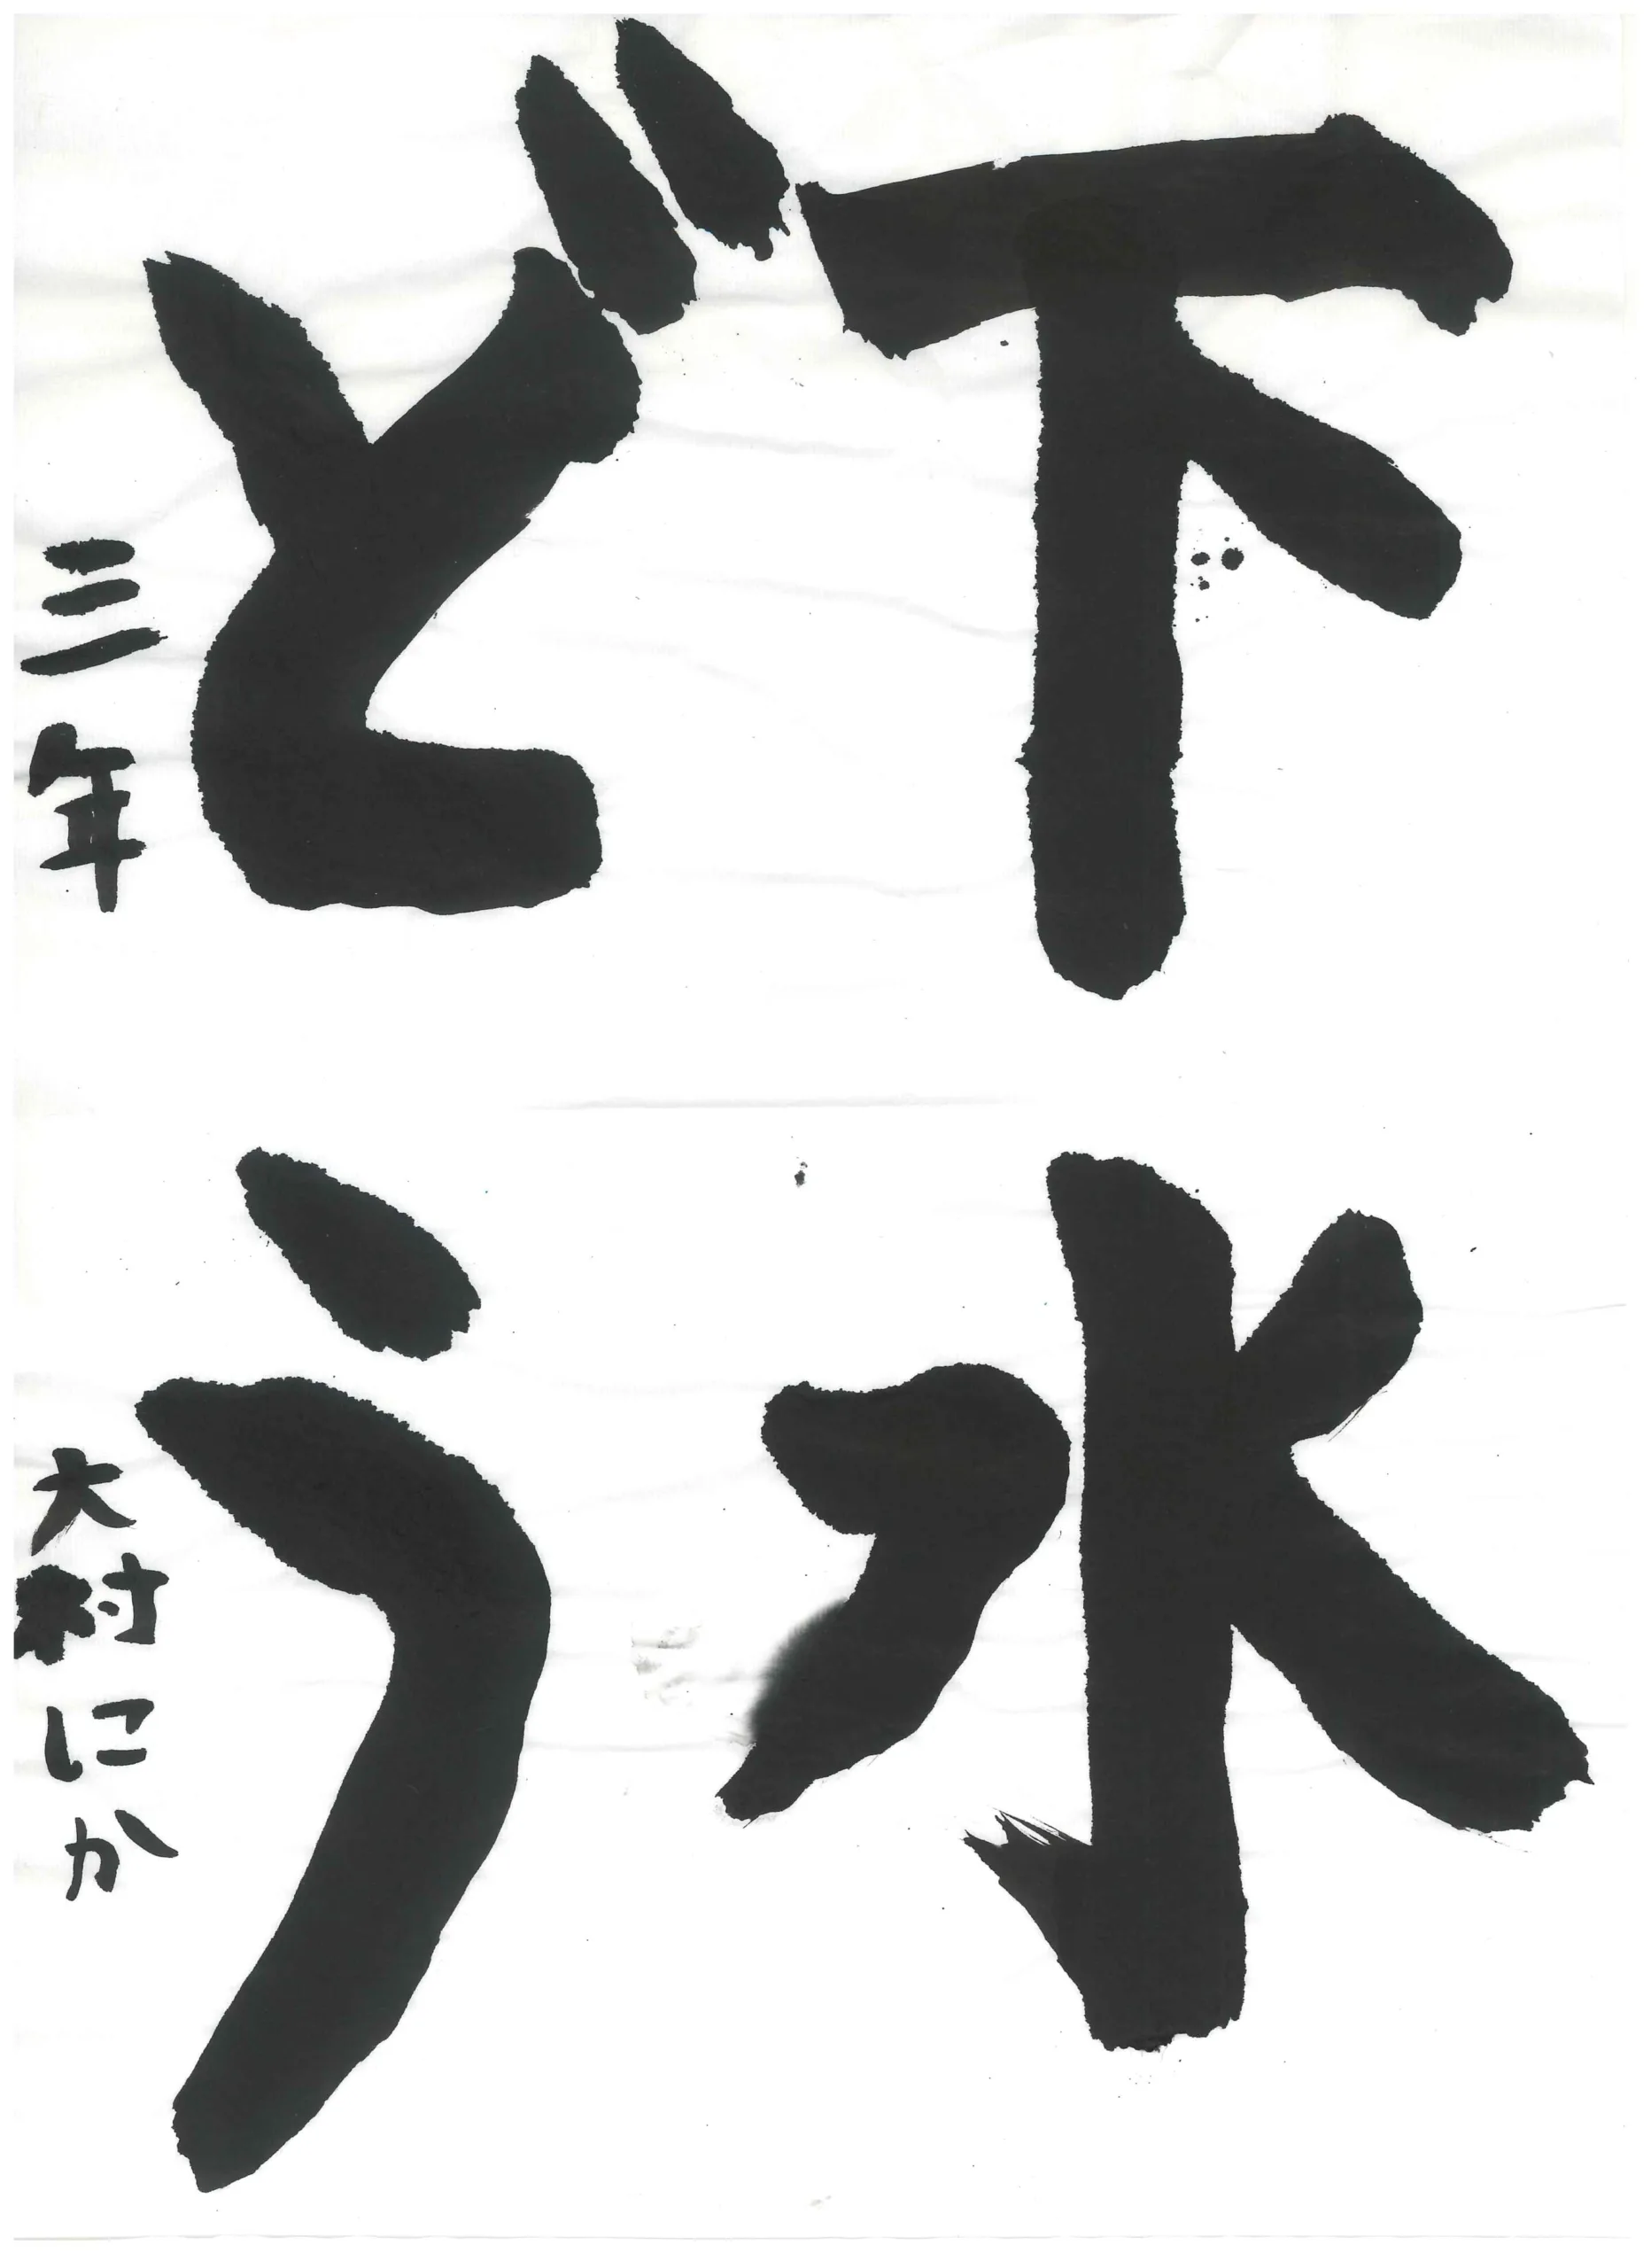 下水
どう
三年 大村にか